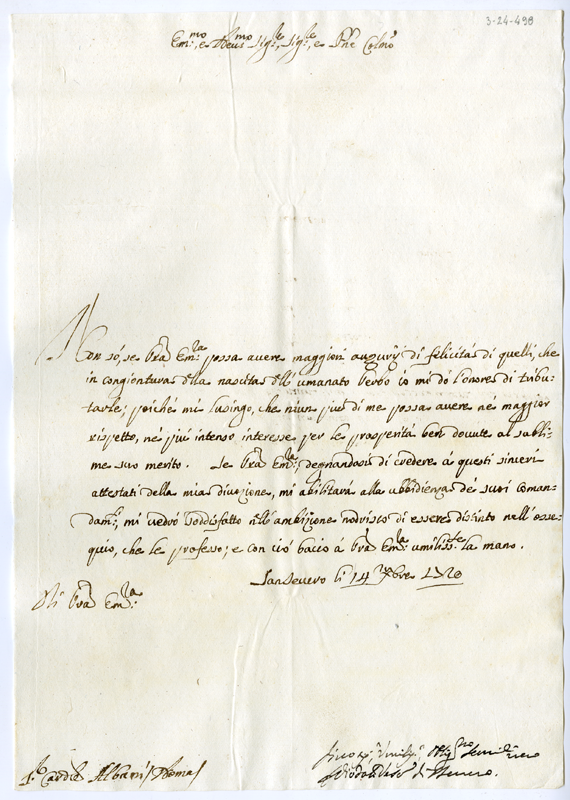 3-24-498
Em.mo, e Reu.mo Sig.re, Sig.re, e Prõne Colmo
Non só, se Vrã Em.za possa auere maggiori augurij di felicitá di quelli, che
in congiontura della nascita dell' umanato Verbo io mi dó l'onore di tribu-
tarle; poiché mi lusingo, che niun piú di me possa auere né maggior
rispetto, né piú intenso interesse per le prosperitá ben douute al subli-
me suo merito. Se Vrã Em.za, degnandosi di credere á questi sinceri
attestati della mia diuozione, mi abilitará alla ubbidienza dé suoi coman-
dam.ti, mi uedró soddisfatto nell'ambizione nodrisco di essere distinto nell'osse-
quio, che le professo; e con ció bacio á Vrã Em.za umiliss.te la mano.
Sanseuero li 14 Xbre 1720
Di Vrã Em.za
S.r Card.le Albani Roma
Diuot.mo Obblig.mo Seruid.re uero